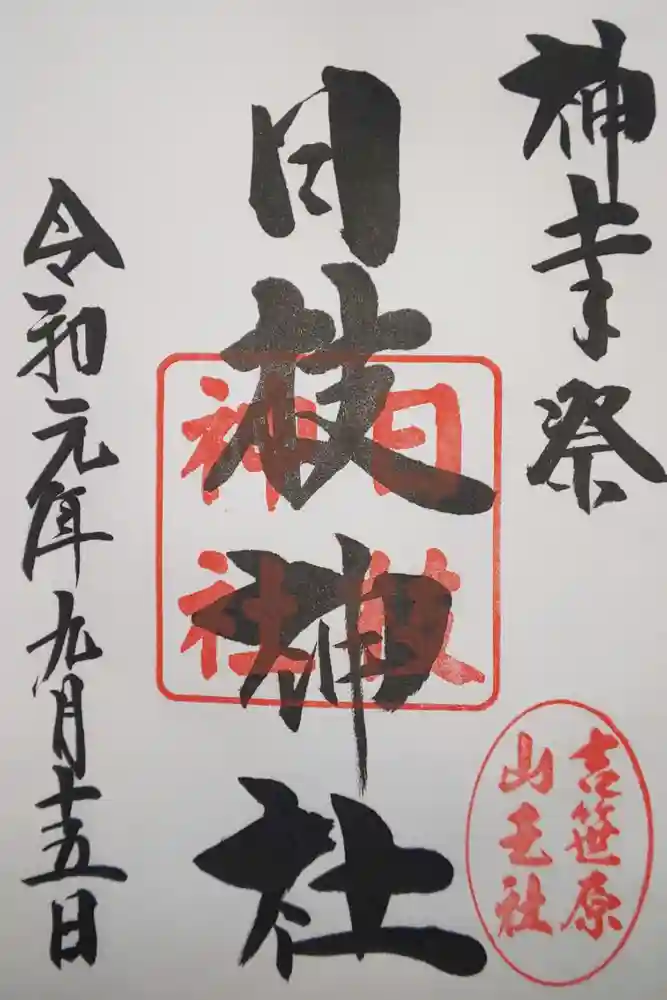 神幸祭
日枝神社
日枝
神社
吉笹原
山王社
令和元年九月十五日